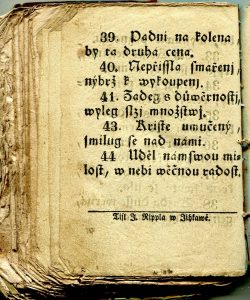 39. Padni na kolena
by ta druha cena.
40. Nepřissla smařenj
nýbrž k wykoupenj.
41. Zadeg s důwěrnostj,
wyleg slzj množstwj.
43. Kriste umučený
smilug se nad námi.
44 Uděl nám swou mi-
lost, w nebi wěčnou radost.
Tisk J. Rippla w Jihlawě.